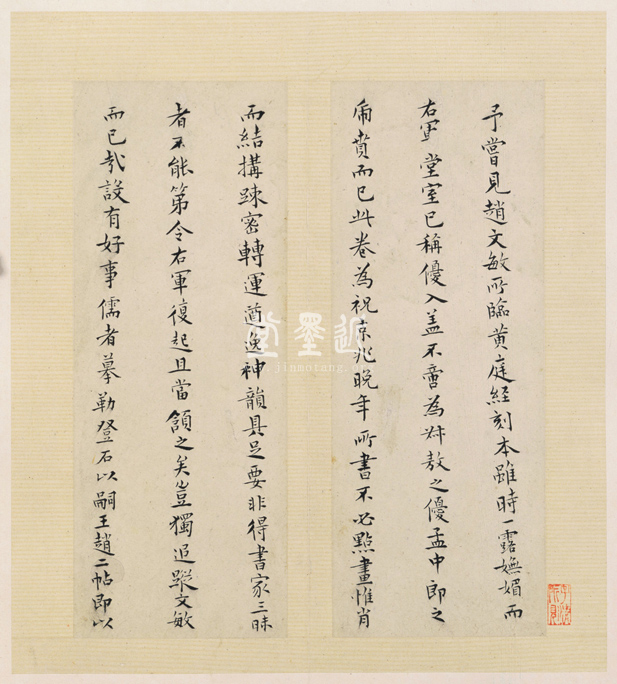 予嘗見趙文敏所臨黃庭經刻本雖時一露嫵媚而
右軍堂室已稱優入蓋不啻為叔敖之優孟中郎之
虎賁而已此卷為祝京兆晚年所書不必點畫惟肖
而結搆踈密轉運遒逸神韻具足要非得書家三昧
者不能第令右軍復起且當頷之矣豈獨追蹤文敏
而已哉設有好事儒者摹勒登石以嗣王趙二帖即以
近墨堂
www.jinmotang.org